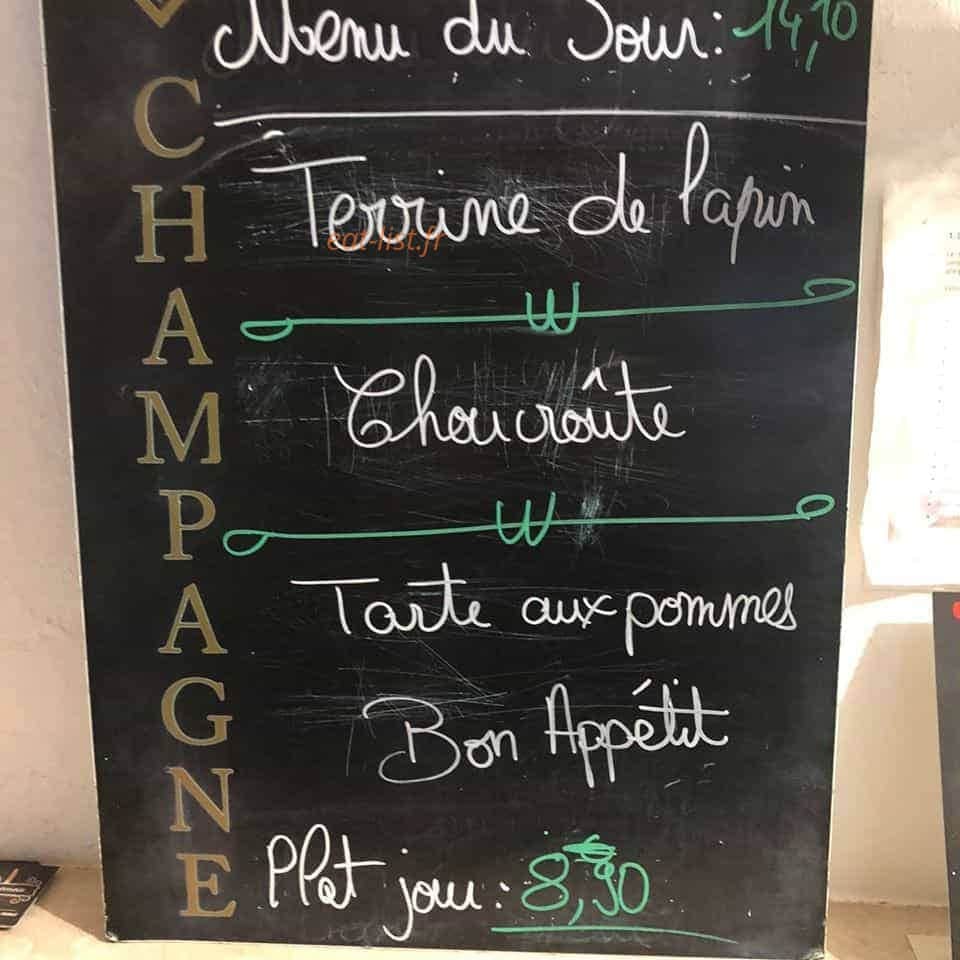 Menu du Jour: 14,10
CHAMPAGNE
Terrine de lapin
eat-list.fr
Choucroûte
Tarte aux pommes
Bon Appétit
Plat jour: 8,90